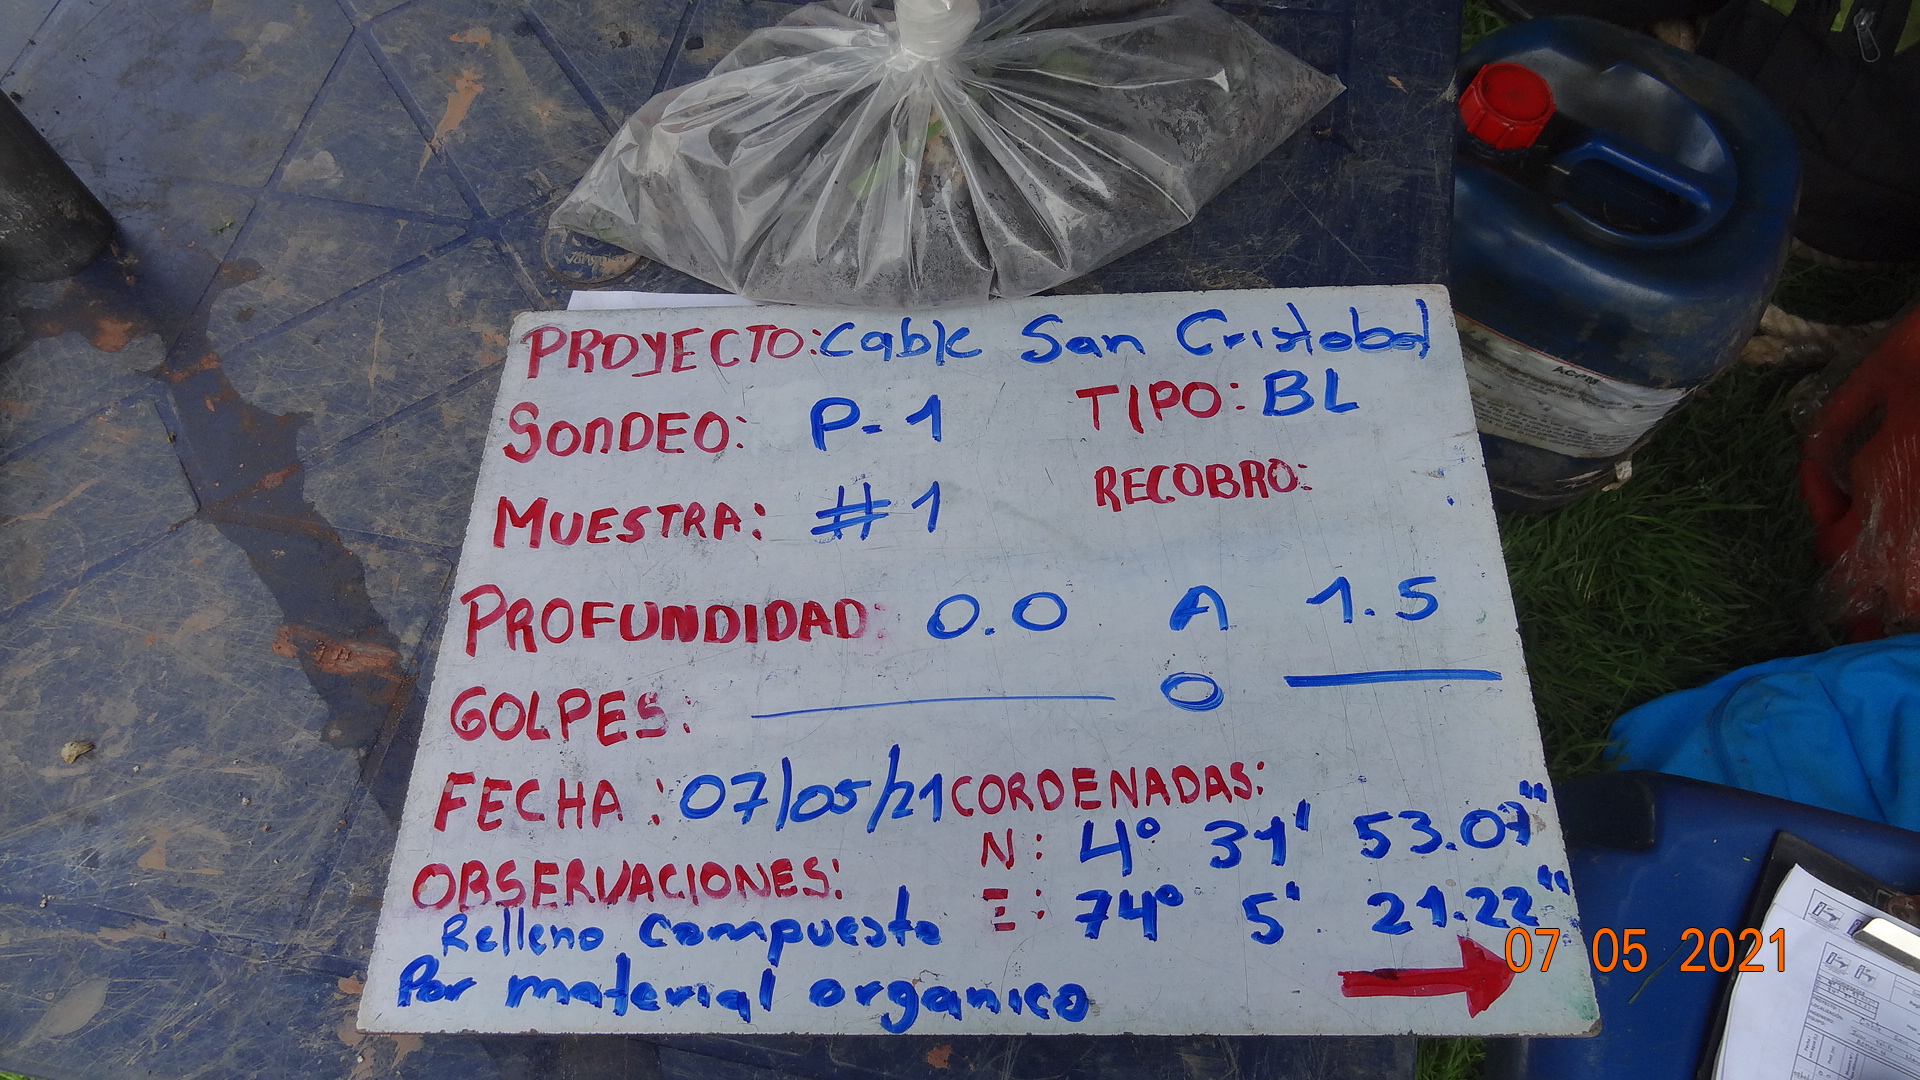 PROYECTO: Cable San Cristobal
SONDEO: P-1 TIPO: BL
MUESTRA: #1 RECOBRO:
PROFUNDIDAD: 0.0 A 1.5
GOLPES: 0
FECHA: 07/05/21 CORDENADAS:
N: 4° 31' 53.07"
E: 74° 5' 21.22"
OBSERVACIONES:
Relleno compuesto
Por material organico
07 05 2021
ACPM